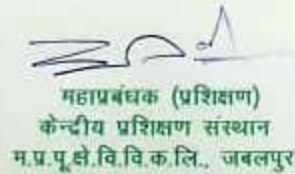 महाप्रबंधक (प्रशिक्षण)
केन्द्रीय प्रशिक्षण संस्थान
म.प्र.पू.क्षे.वि.वि.क.लि., जबलपुर